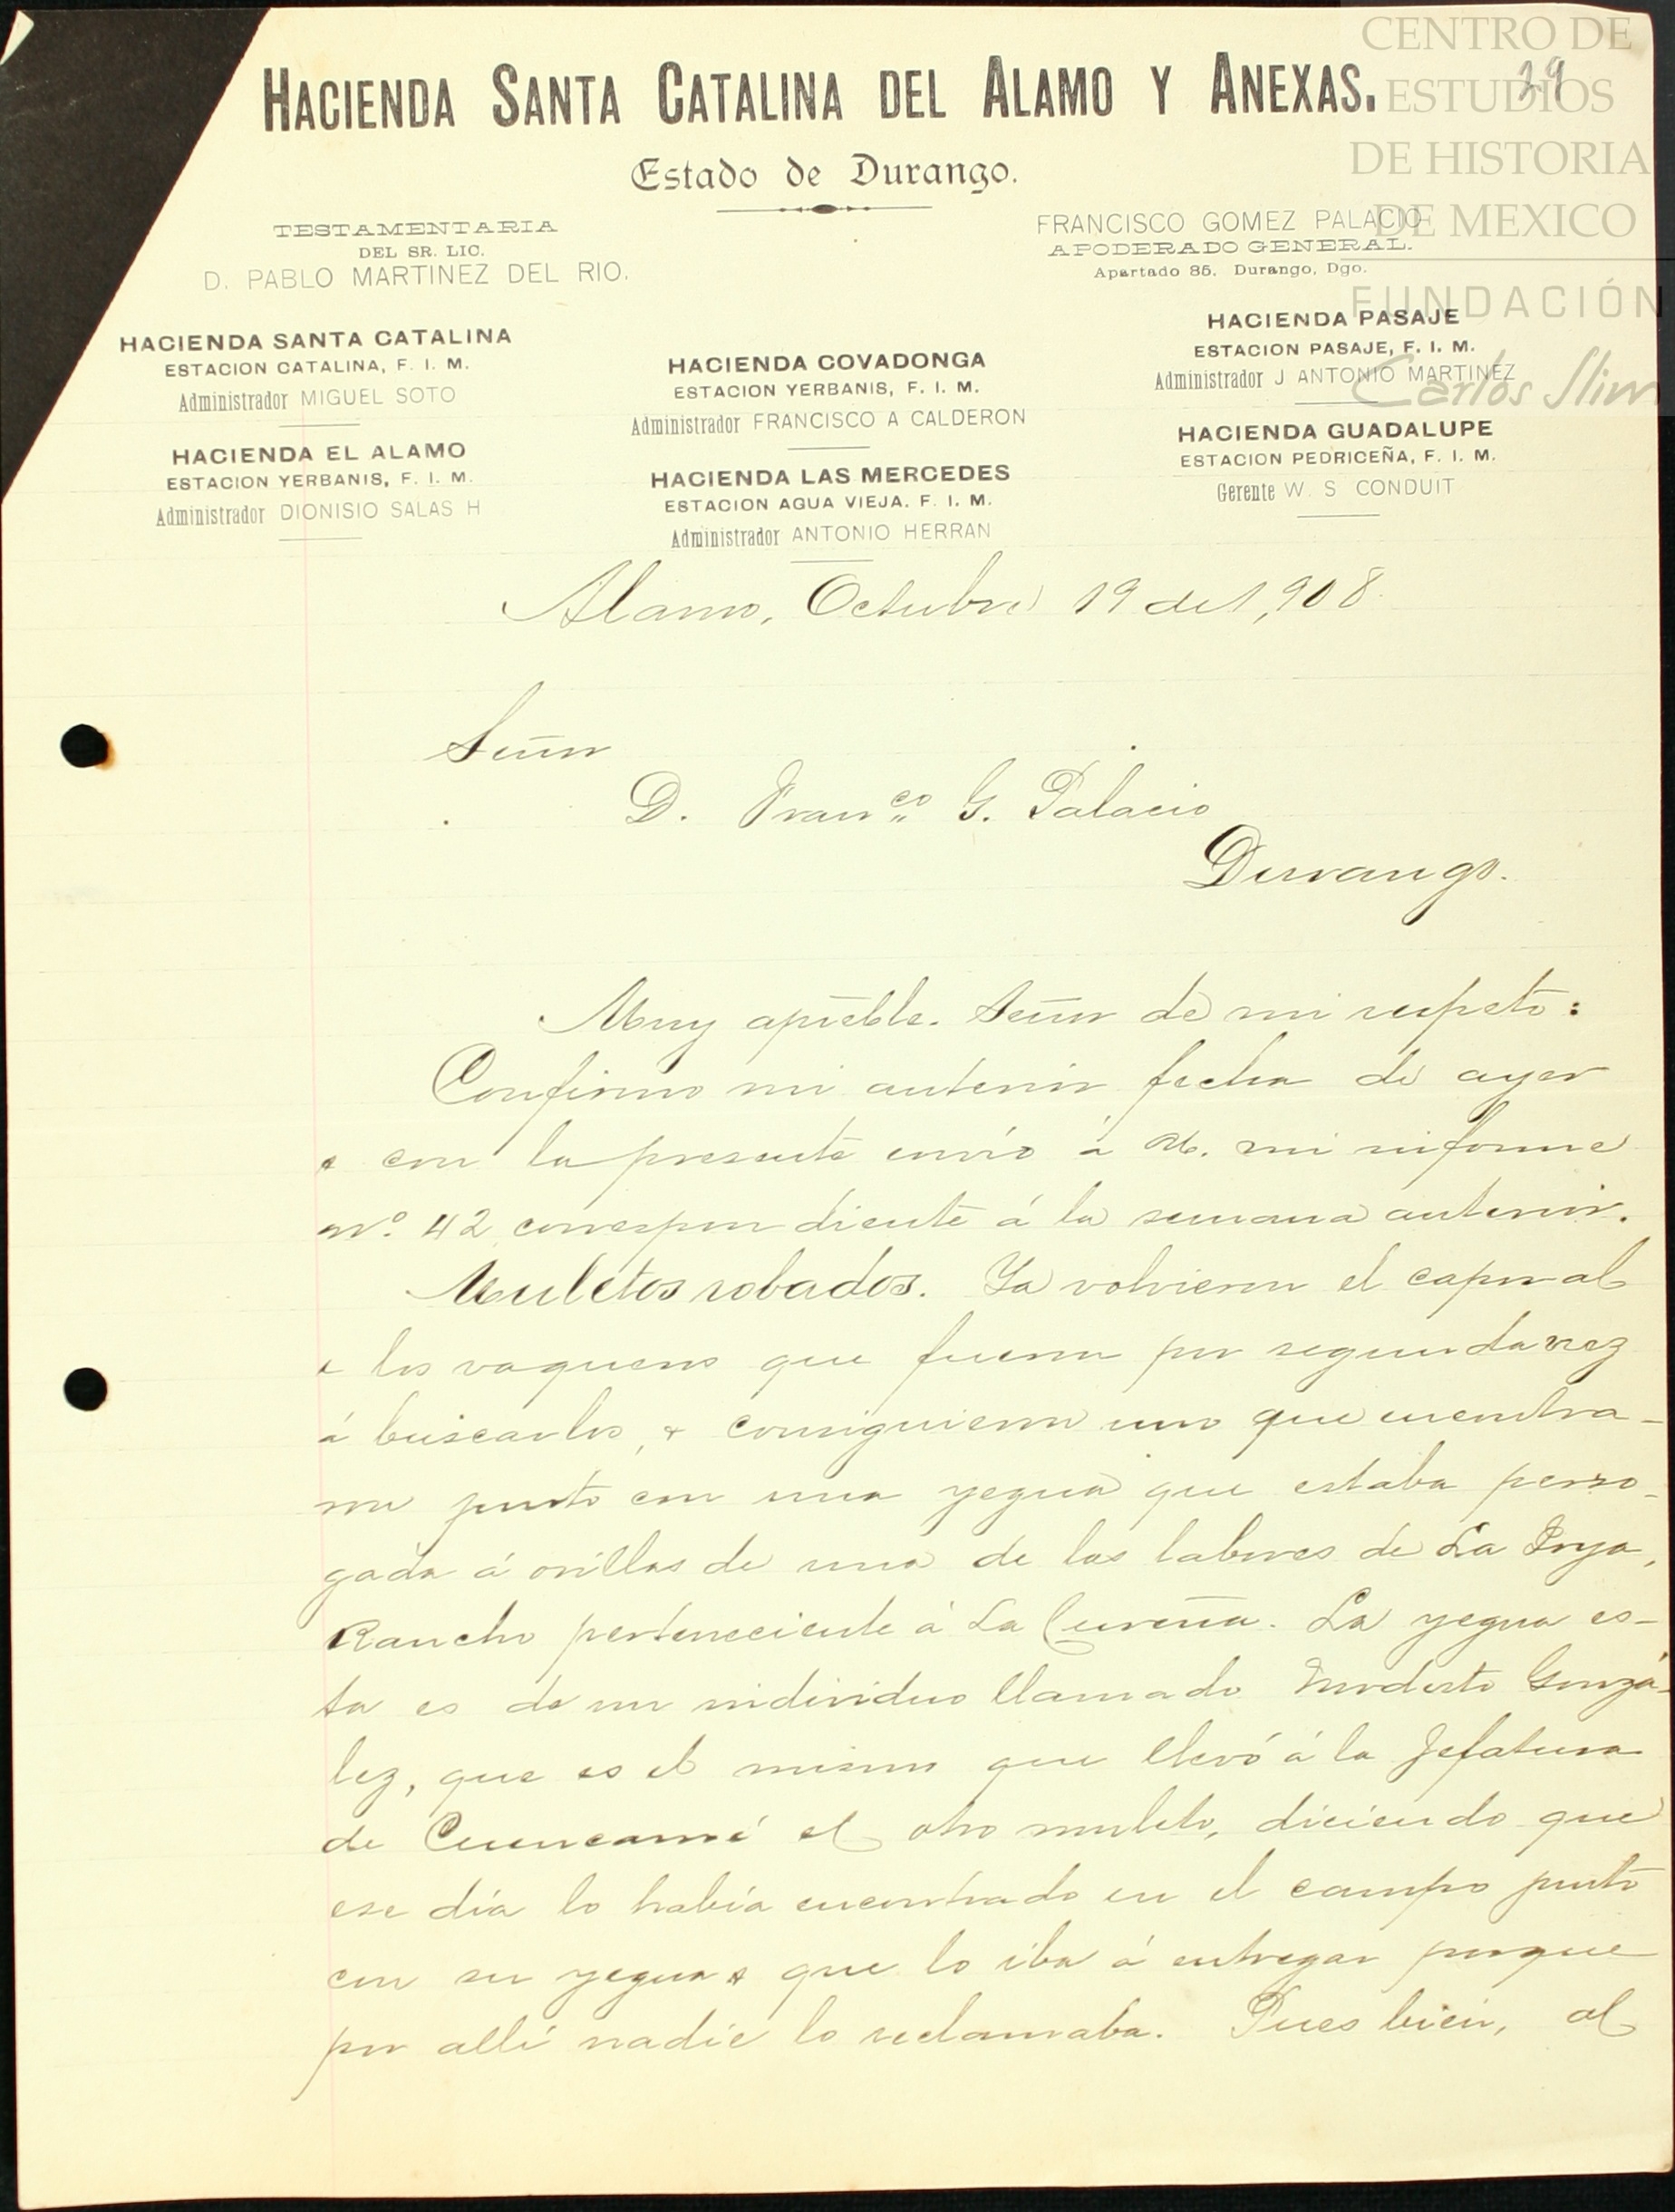 CENTRO DE
ESTUDIOS
DE HISTORIA
DE MEXICO
FUNDACIÓN
Carlos Slim
29
HACIENDA SANTA CATALINA DEL ALAMO Y ANEXAS.
Estado de Durango.
TESTAMENTARIA
DEL SR. LIC.
D. PABLO MARTINEZ DEL RIO.
FRANCISCO GOMEZ PALACIO
APODERADO GENERAL.
Apartado 85. Durango, Dgo.
HACIENDA SANTA CATALINA
ESTACION CATALINA, F. I. M.
Administrador MIGUEL SOTO
HACIENDA EL ALAMO
ESTACION YERBANIS, F. I. M.
Administrador DIONISIO SALAS H
HACIENDA COVADONGA
ESTACION YERBANIS, F. I. M.
Administrador FRANCISCO A CALDERON
HACIENDA LAS MERCEDES
ESTACION AGUA VIEJA. F. I. M.
Administrador ANTONIO HERRAN
HACIENDA PASAJE
ESTACION PASAJE, F. I. M.
Administrador J ANTONIO MARTINEZ
HACIENDA GUADALUPE
ESTACION PEDRICEÑA, F. I. M.
Gerente W. S CONDUIT
Alamo, Octubre 19 de 1,908
Señor
D. Franco. G. Palacio
Durango.
Muy apreble. Señor de mi respeto:
Confirmo mi anterior fecha de ayer
y con la presente envío á U. mi informe
no. 42 correspondiente á la semana anterior.
Muletos robados. Ya volvieron el caporal
y los vaqueros que fueron por segunda vez
á buscarlos, y consiguieron uno que encontra-
ron junto con una yegua que estaba perso-
gada á orillas de una de las labores de La Joya,
Rancho perteneciente á La Cureña. La yegua es-
ta es de un individuo llamado Modesto Gonzá-
lez, que es el mismo que llevó á la Jefatura
de Cuencamé el otro muleto, diciendo que
ese día lo había encontrado en el campo junto
con su yegua y que lo iba á entregar porque
por allí nadie lo reclamaba. Pues bien, al